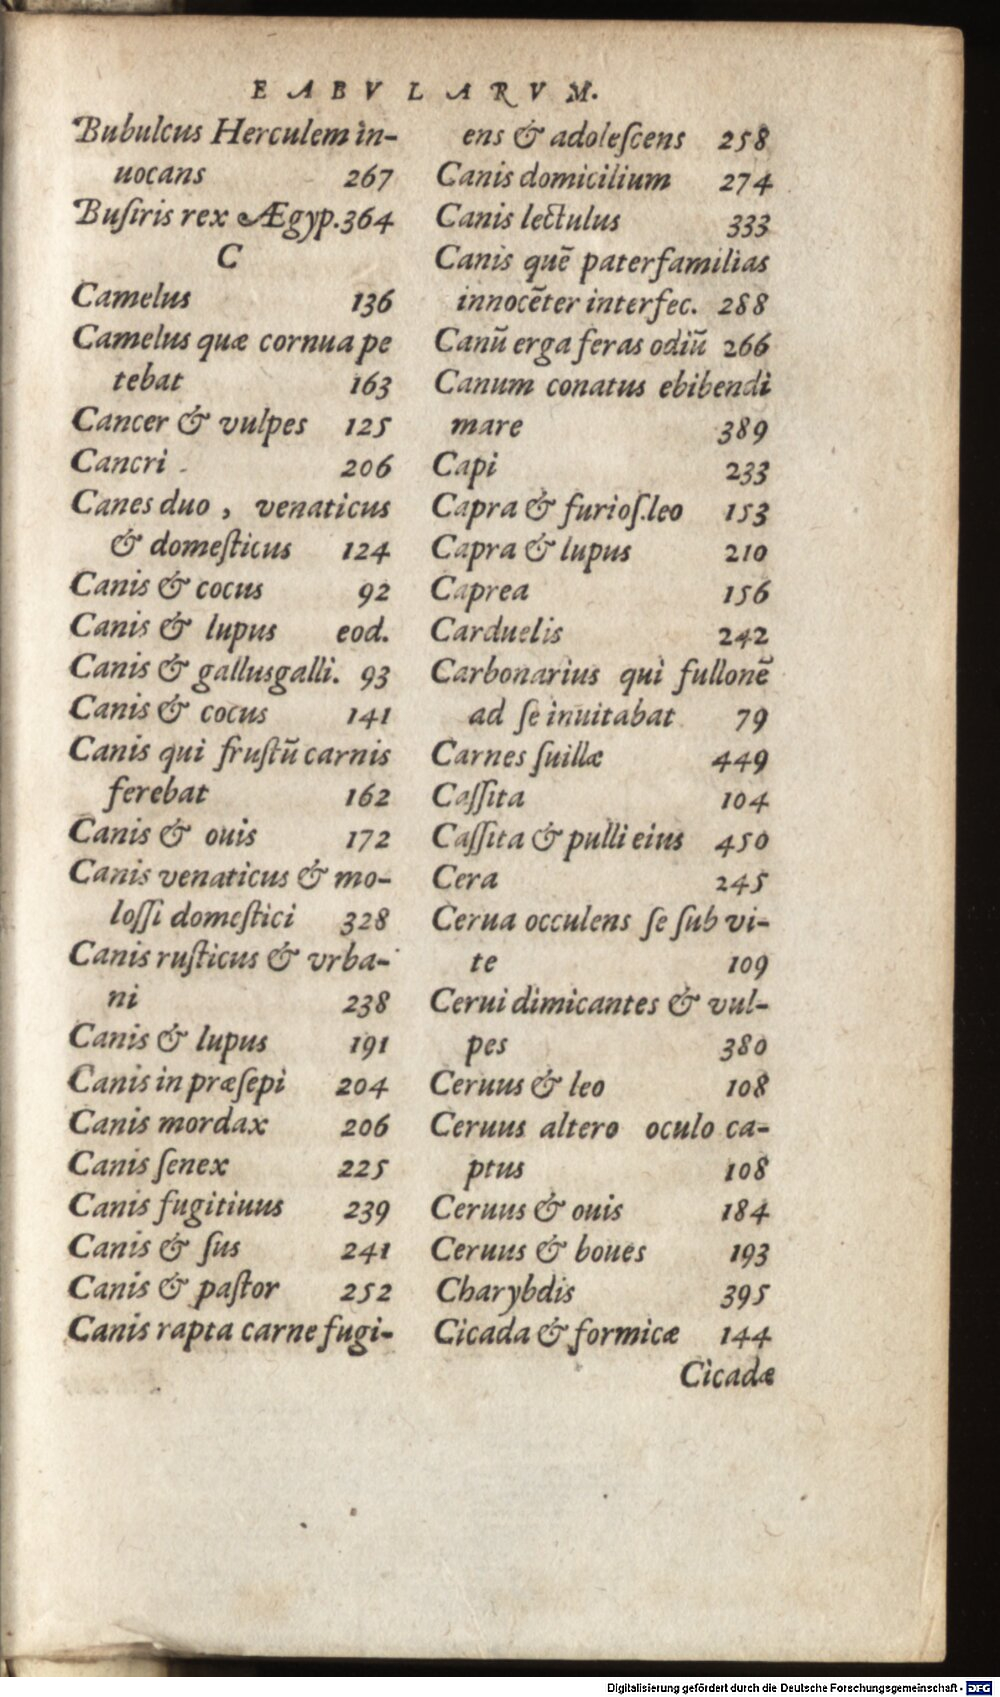 EABVLARVM.
Bubulcus Herculem in-
uocans 267
Buſiris rex Ægyp.364
C
Camelus 136
Camelus quæ cornua pe
tebat 163
Cancer & vulpes 125
Cancri 206
Canes duo, venaticus
& domeſticus 124
Canis & cocus 92
Canis & lupus eod.
Canis & gallusgalli. 93
Canis & cocus 141
Canis qui fruſtū carnis
ferebat 162
Canis & ouis 172
Canis venaticus & mo-
loſſi domeſtici 328
Canis ruſticus & vrba-
ni 238
Canis & lupus 191
Canis in præſepi 204
Canis mordax 206
Canis ſenex 225
Canis fugitiuus 239
Canis & ſus 241
Canis & paſtor 252
Canis rapta carne fugi-
ens & adoleſcens 258
Canis domicilium 274
Canis lectulus 333
Canis quē paterfamilias
innocēter interfec. 288
Canū erga feras odiū 266
Canum conatus ebibendi
mare 389
Capi 233
Capra & furioſ.leo 153
Capra & lupus 210
Caprea 156
Carduelis 242
Carbonarius qui fullonē
ad ſe inuitabat 79
Carnes ſuillæ 449
Caſſita 104
Caſſita & pulli eius 450
Cera 245
Cerua occulens ſe ſub vi-
te 109
Cerui dimicantes & vul-
pes 380
Ceruus & leo 108
Ceruus altero oculo ca-
ptus 108
Ceruus & ouis 184
Ceruus & boues 193
Charybdis 395
Cicada & formicæ 144
Cicadæ
Digitalisierung gefördert durch die Deutsche Forschungsgemeinschaft - DFG